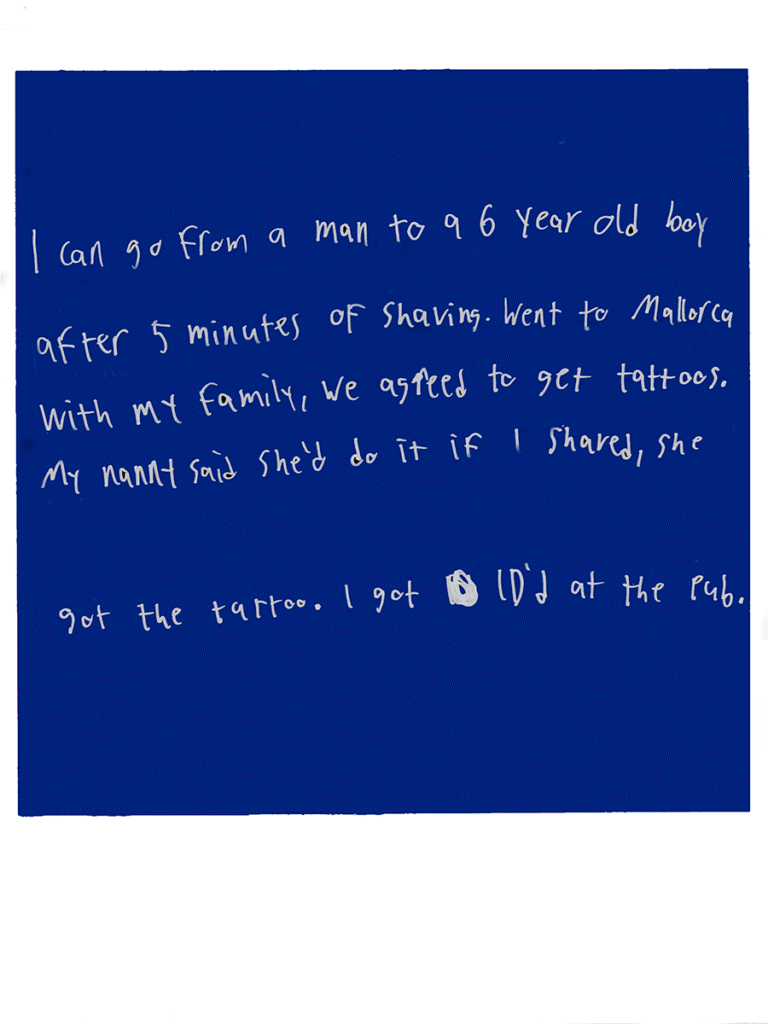 I can go from a man to a 6 year old boy
after 5 minutes of shaving. Went to Mallorca
with my family, we agreed to get tattoos.
My nanny said she'd do it if I shaved, she
got the tattoo. I got ID'd at the pub.